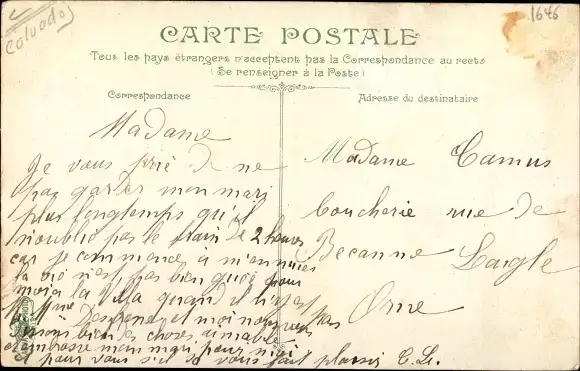 Calvados
1646
CARTE POSTALE
Tous les pays étrangers n'acceptent pas la Correspondance au recto
(Se renseigner à la Poste)
Correspondance
Adresse du destinataire
Madame
Je vous prie de ne
pas garder mon mari
plus longtemps qu'il
n'oublie pas le train de 2 heures
car je commence à m'ennuier
la vie n'est pas bien quoi pour
moi a la villa quand il n'est pas
Desprendy et moi nous vous
disons bien des choses aimables
embrasse mon mari pour moi
et pour vous s'il vous fait plaisir C. L.
Madame Camus
boucherie rue de
Becanne Laigle
Orne